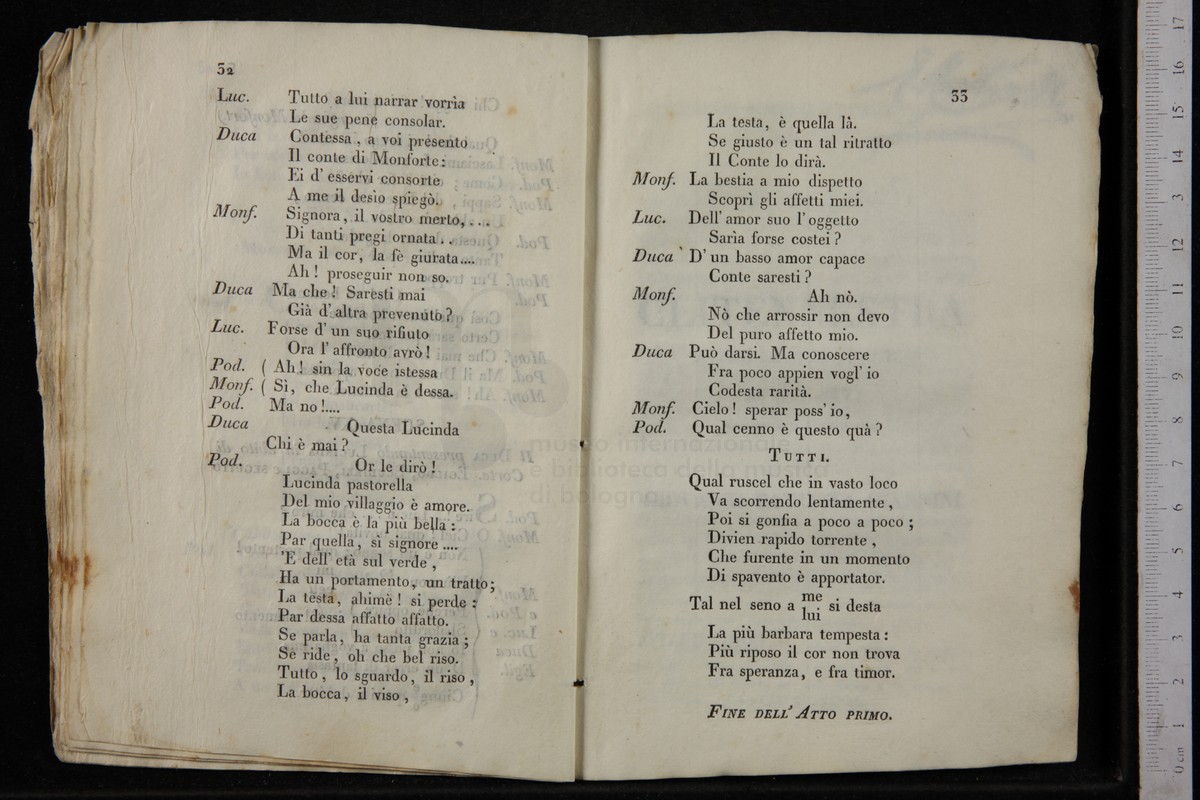 32
Luc. Tutto a lui narrar vorrìa
Le sue pene consolar.
Duca Contessa, a voi presento
Il conte di Monforte:
Ei d' esservi consorte
A me il desìo spiegò.
Monf. Signora, il vostro merto,...
Di tanti pregi ornata..
Ma il cor, la fè giurata....
Ah! proseguir non so.
Duca Ma che! Saresti mai
Già d' altra prevenuto?
Luc. Forse d' un suo rifiuto
Ora l' affronto avrò!
Pod. ( Ah! sin la voce istessa
Monf. ( Sì, che Lucinda è dessa.
Pod. Ma no!....
Duca Questa Lucinda
Chi è mai?
Pod. Or le dirò!
Lucinda pastorella
Del mio villaggio è amore.
La bocca è la più bella:
Par quella, sì signore....
'E dell' età sul verde,
Ha un portamento, un tratto;
La testa, ahimè! si perde:
Par dessa affatto affatto.
Se parla, ha tanta grazia;
Se ride, oh che bel riso.
Tutto, lo sguardo, il riso,
La bocca, il viso,
33
La testa, è quella là.
Se giusto è un tal ritratto
Il Conte lo dirà.
Monf. La bestia a mio dispetto
Scoprì gli affetti miei.
Luc. Dell' amor suo l' oggetto
Sarìa forse costei?
Duca D' un basso amor capace
Conte saresti?
Monf. Ah nò.
Nò che arrossir non devo
Del puro affetto mio.
Duca Può darsi. Ma conoscere
Fra poco appien vogl' io
Codesta rarità.
Monf. Cielo! sperar poss' io,
Pod. Qual cenno è questo quà?
TUTTI.
Qual ruscel che in vasto loco
Va scorrendo lentamente,
Poi si gonfia a poco a poco;
Divien rapido torrente,
Che furente in un momento
Di spavento è apportator.
Tal nel seno a me si desta
lui
La più barbara tempesta:
Più riposo il cor non trova
Fra speranza, e fra timor.
FINE DELL' ATTO PRIMO.
museo internazionale
e biblioteca della musica
di bologna
0 cm 1 2 3 4 5 6 7 8 9 10 11 12 13 14 15 16 17